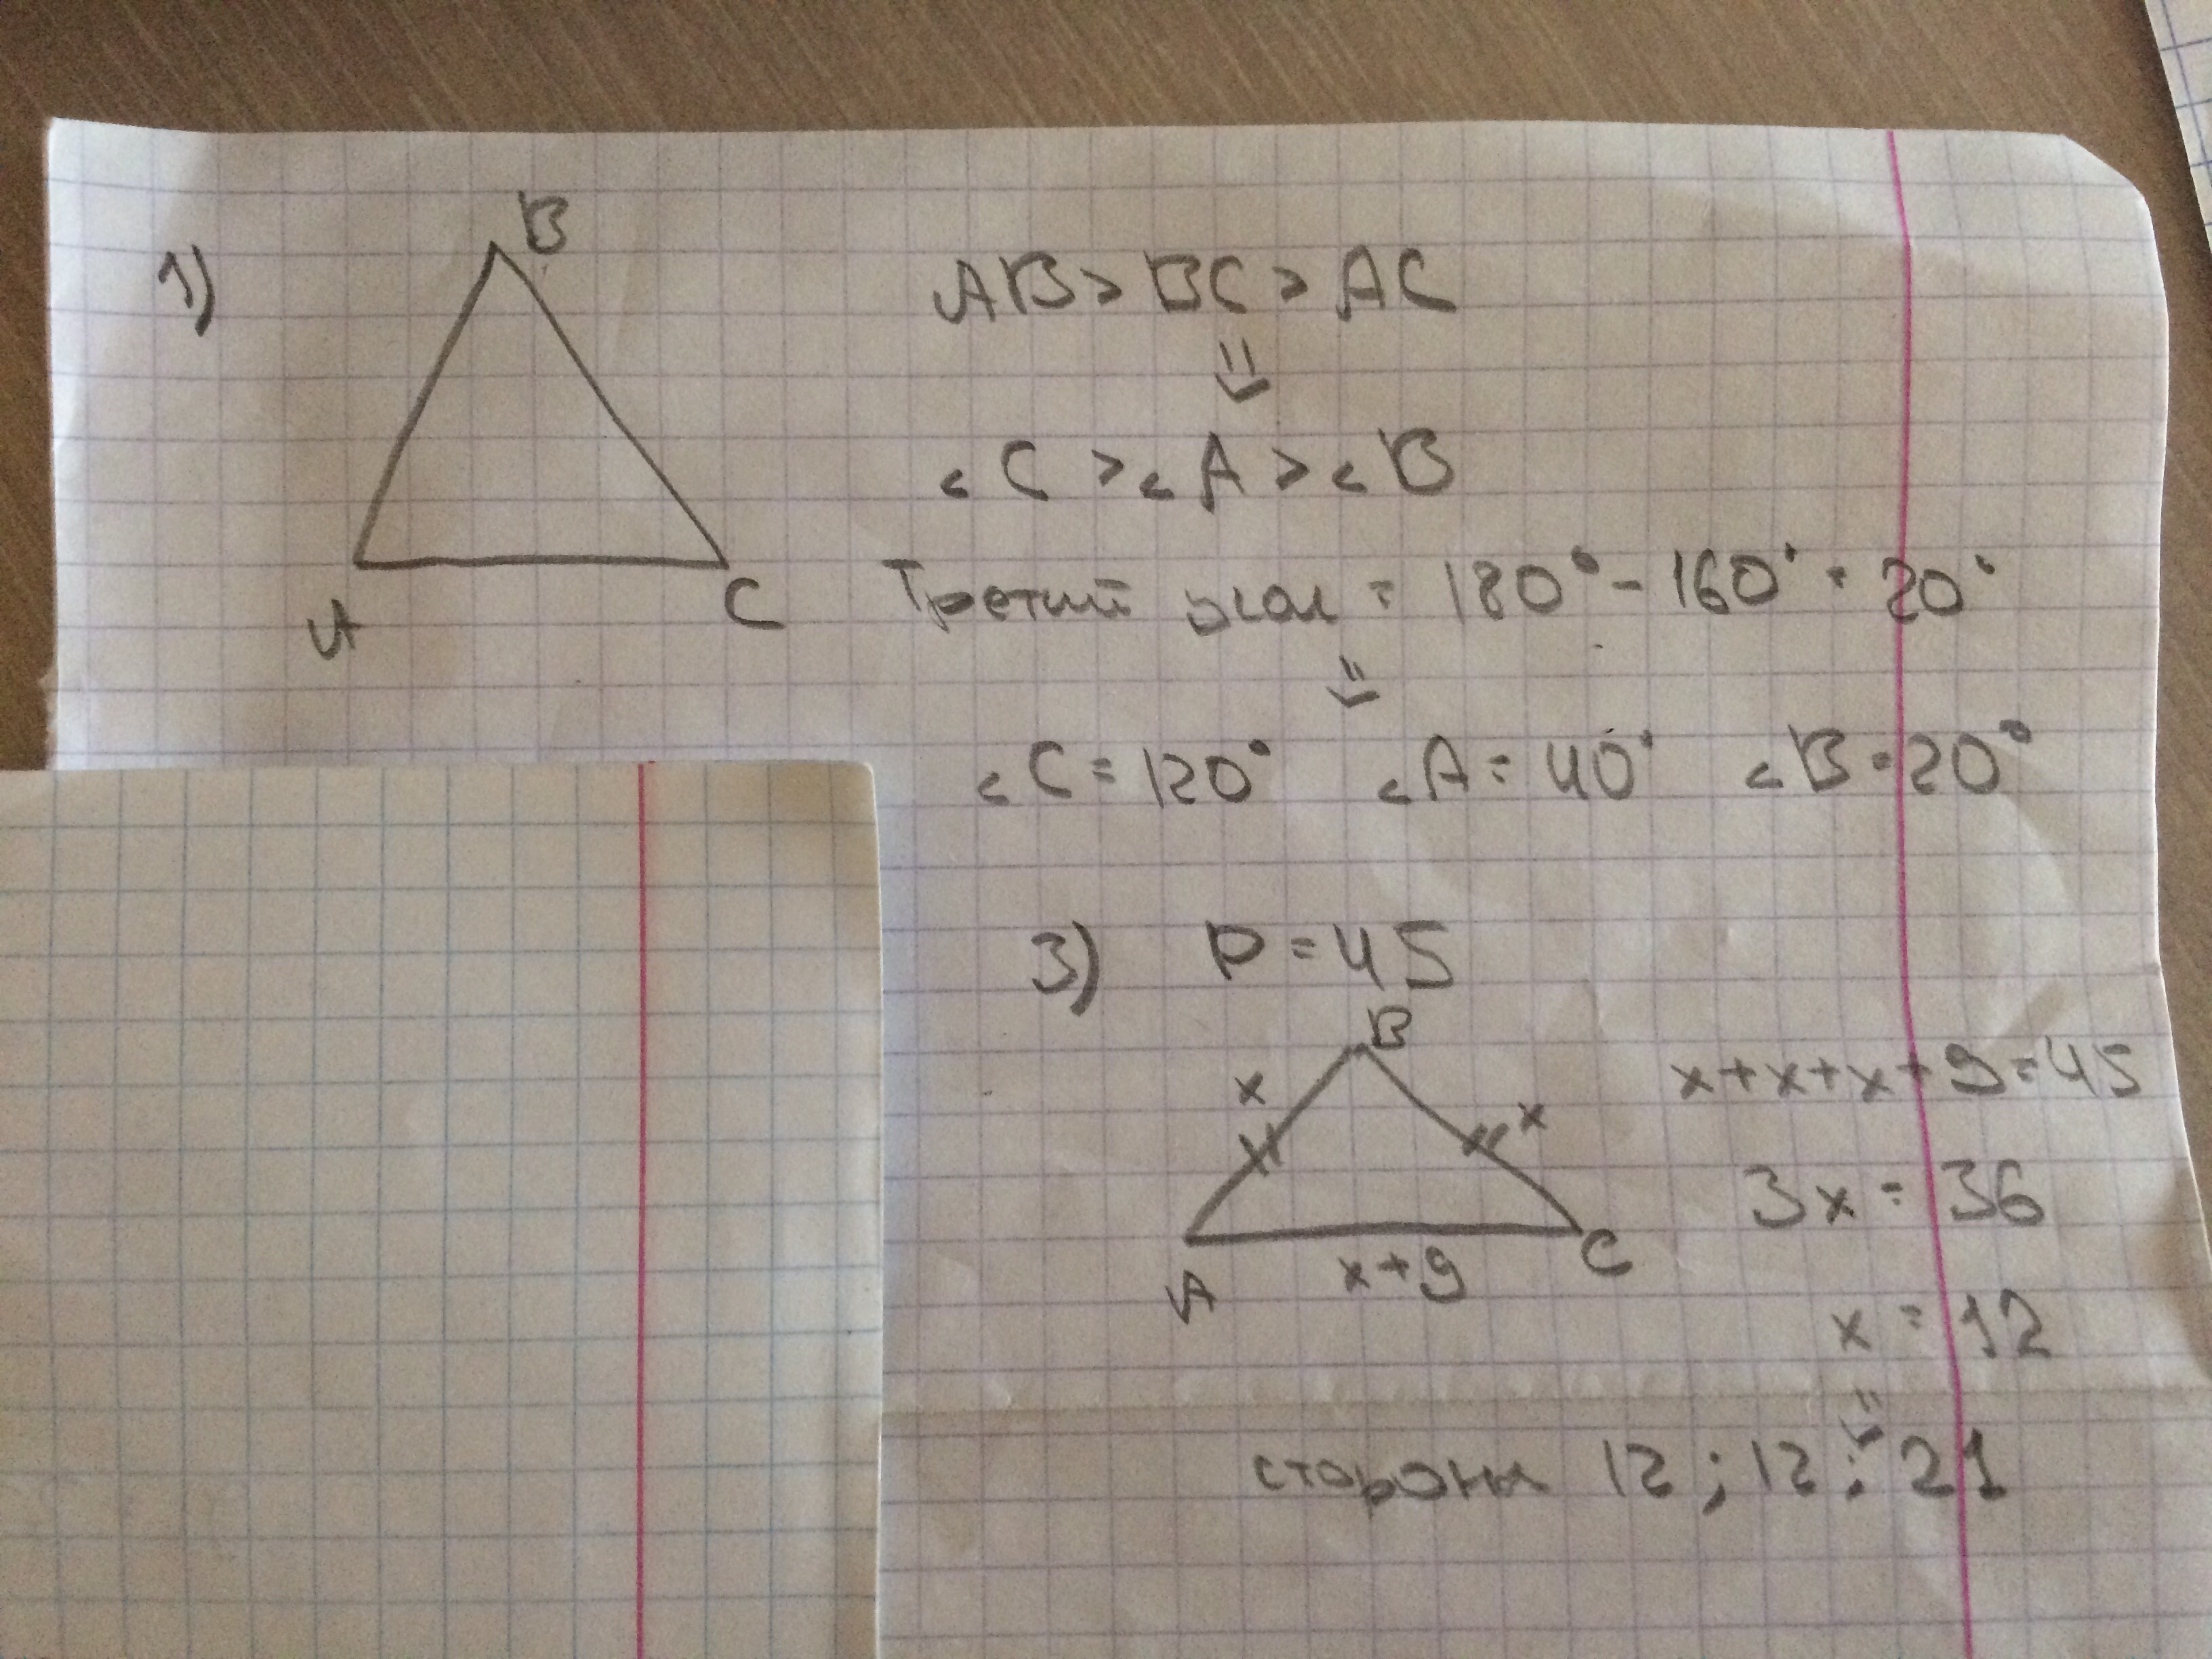 1)
B
A
C
AB > BC > AC
⇓
∠C > ∠A > ∠B
Третий угол = 180° - 160° = 20°
⇓
∠C = 120° ∠A = 40° ∠B = 20°
3) P = 45
B
x
x
A
x+9
C
x+x+x+9=45
3x = 36
x = 12
⇓
стороны 12 ; 12 ; 21